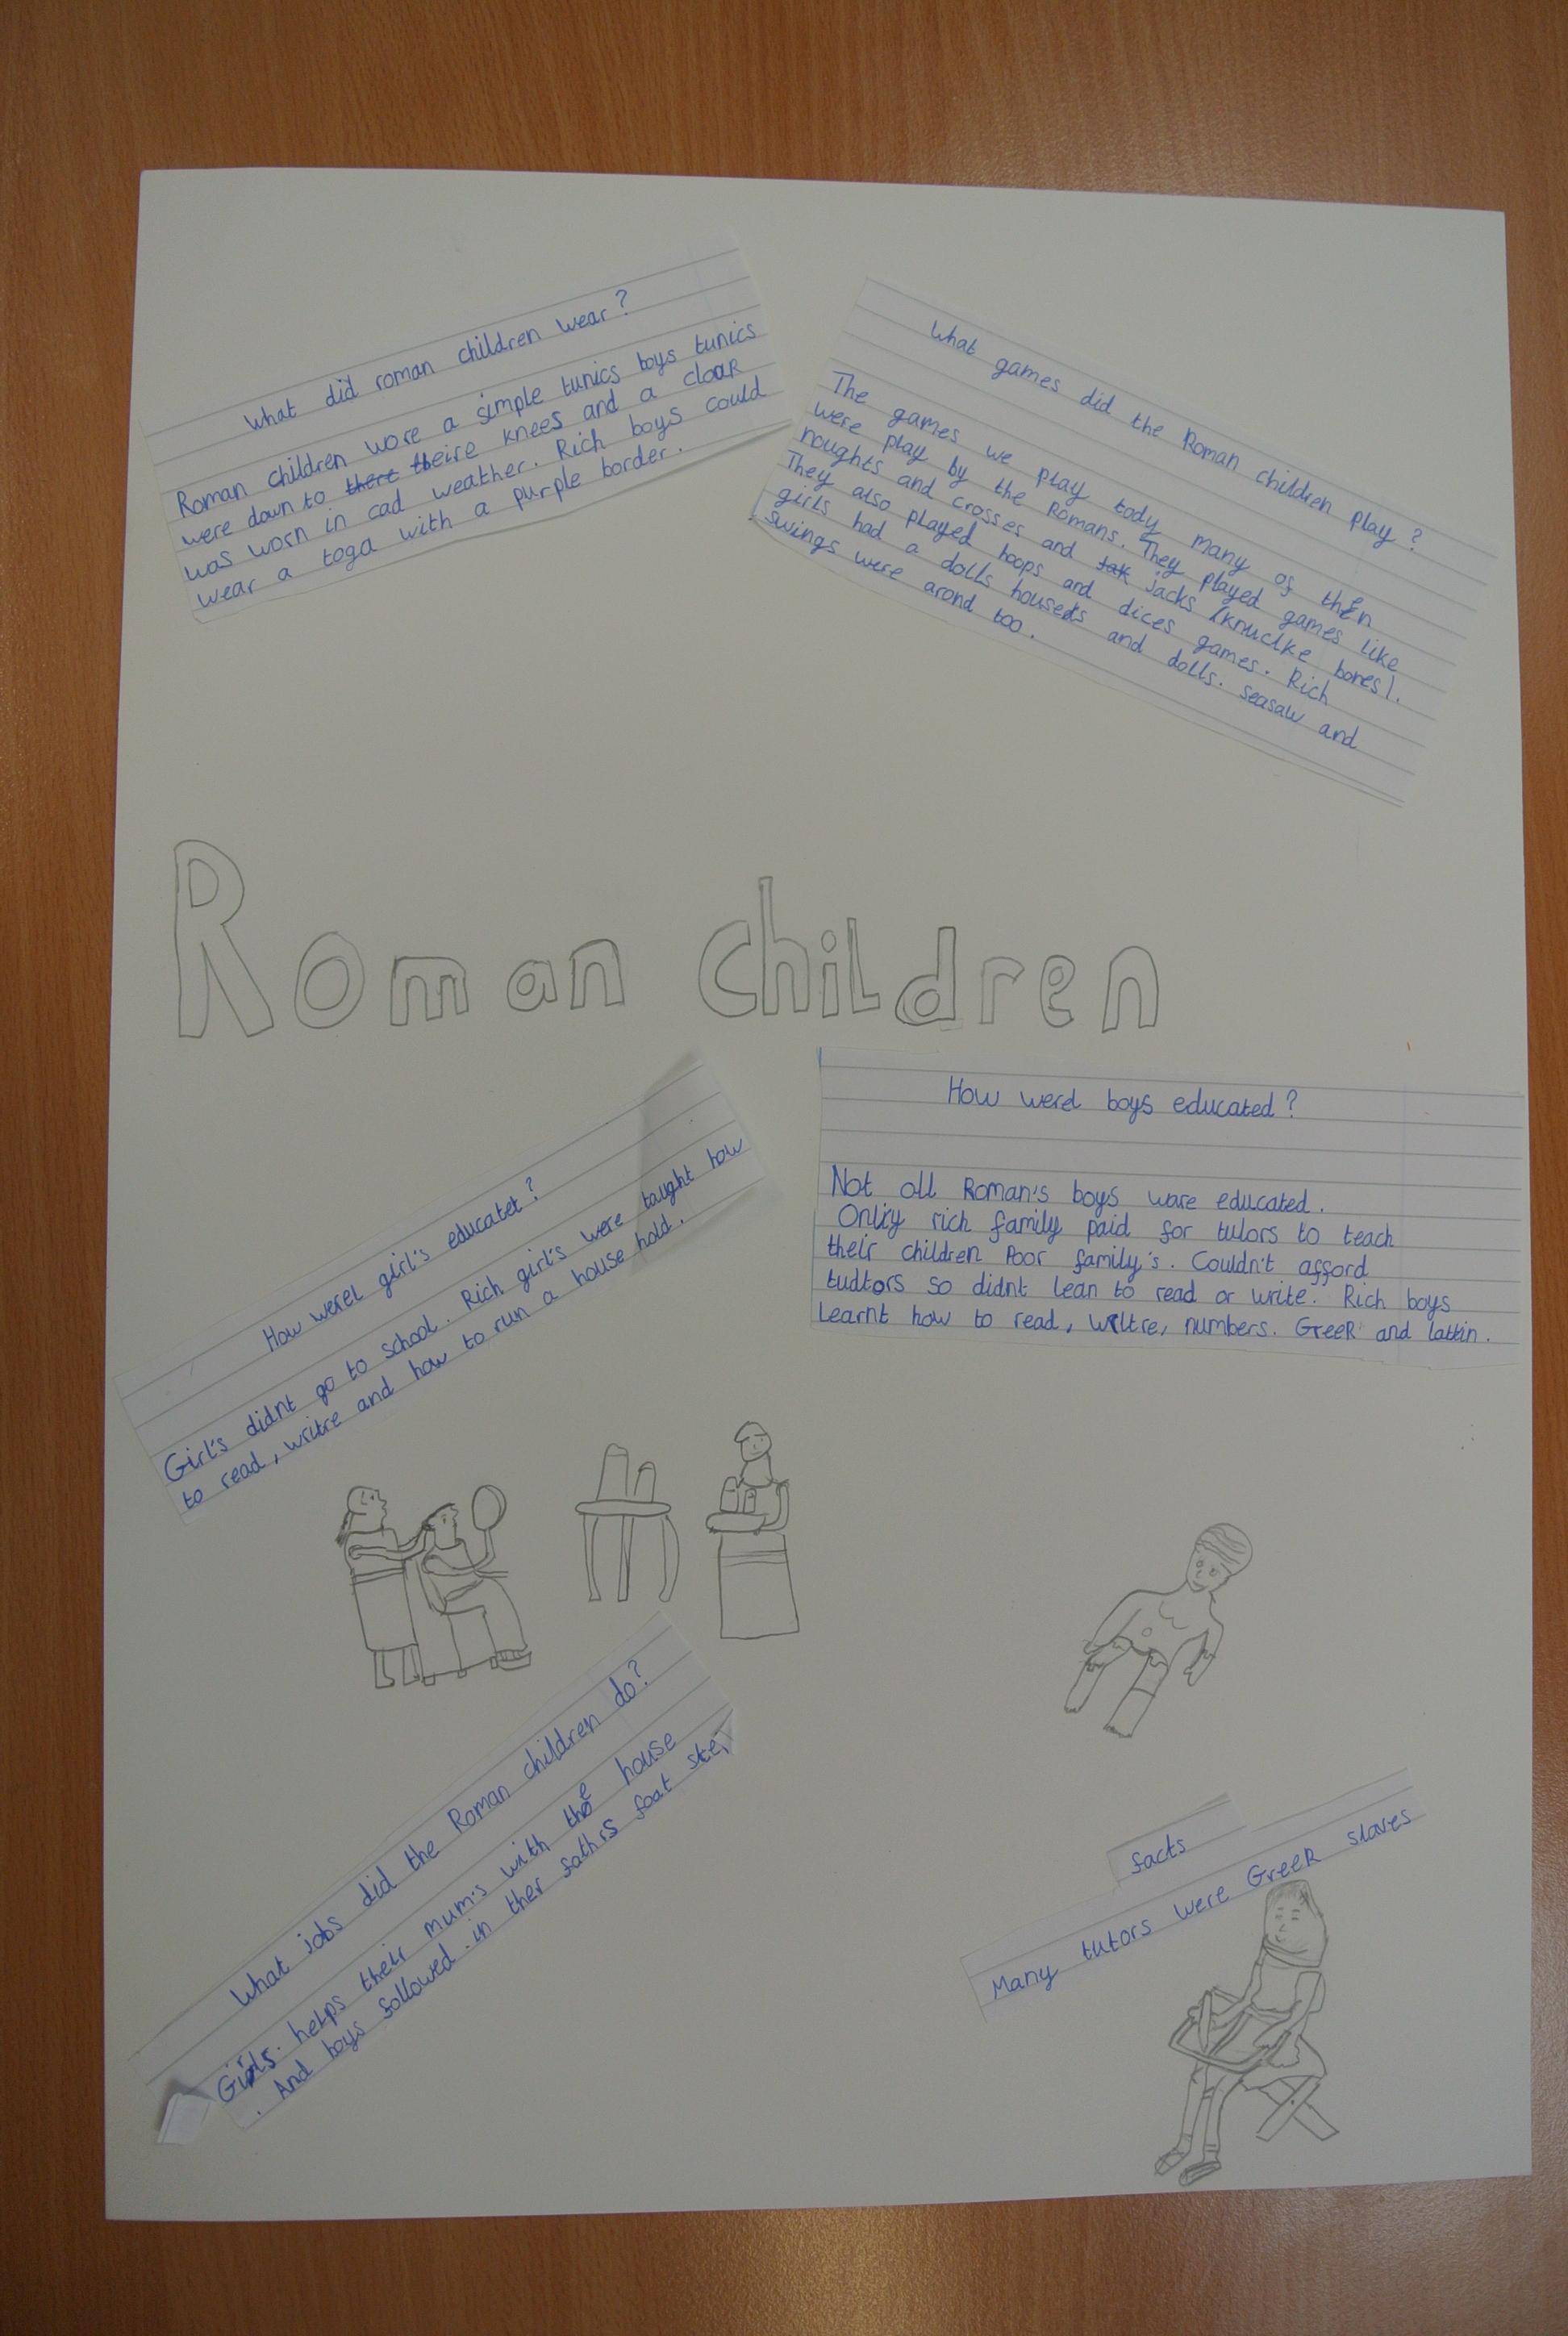 What did roman children wear?
Roman children wore a simple tunics boys tunics
were down to there theire knees and a cloar
was worn in cad weather. Rich boys could
wear a toga with a purple border.
What games did the Roman children play?
The games we play tody many of then
were play by the Romans. They played games like
noughts and crosses and jacks (knuclke bones).
They also played hoops and dices games. Rich
girls had a dolls houses and dolls. seasaw and
swings were arond too.
Roman Children
How were girl's educatet?
Girl's didnt go to school. Rich girl's were taught how
to read, writre and how to run a house hold.
How were boys educated?
Not all Roman's boys ware educated.
Onliy rich family paid for tutors to teach
their children Poor family's. Couldn't afford
tudtors so didnt lean to read or write. Rich boys
Learnt how to read, wrltre, numbers. GreeR and lattin.
What jobs did the Roman children do?
Girls. helps their mum's with the house
. And boys followed. in ther fathrs foat
facts
Many tutors were GreeR slaves